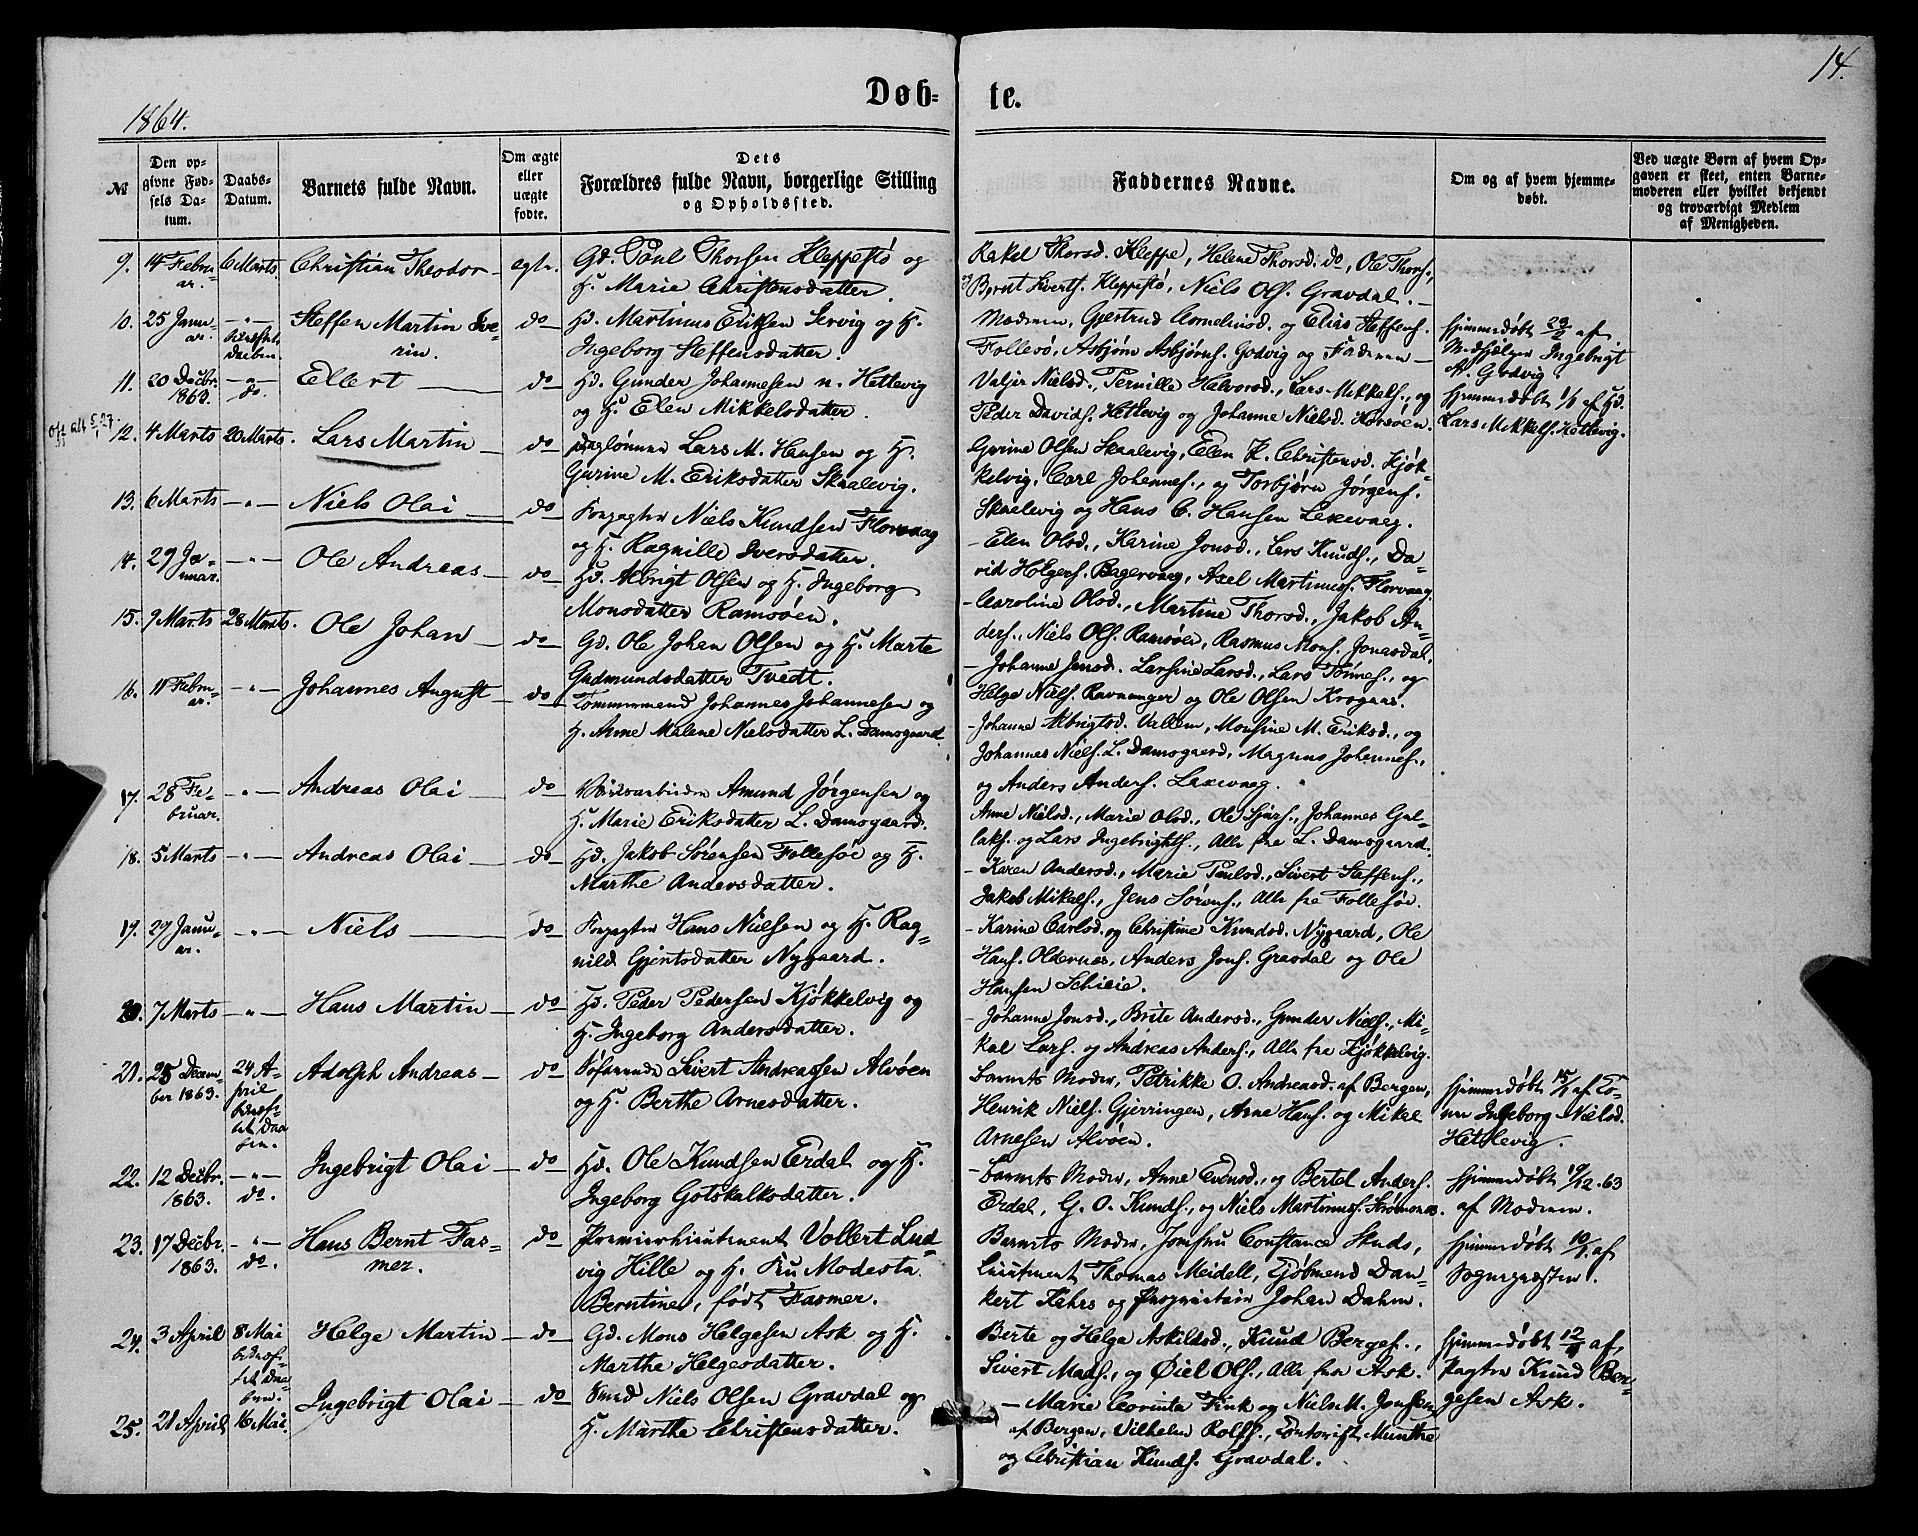 14.
Døb- te.
1864.
№
Den opgivne Fødsels Datum.
Daabs-Datum.
Barnets fulde Navn.
Om ægte eller uægte fødte.
Dets Forældres fulde Navn, borgerlige Stilling og Opholdssted.
Faddernes Navne.
Om og af hvem hjemmedøbt.
Ved uægte Børn af hvem Opgaven er skeet, enten Barnemoderen eller hvilket bekjendt og troværdigt Medlem af Menigheden.
9. 14 Februar. 6 Marts. Christian Theodor — egte.
Gd. Poul Thorsen Kleppestø og
H. Marie Christensdatter.
Rakel Thorsd. Kleppe, Helene Thorsd. do, Ole Thors.,
Bernt Sverts. Kleppestø, Niels Ols. Gravdal. —
10. 25 Januar. —"— bekræftet Daaben. Steffen Martin Severin. do
Hd. Martinus Eriksen Servig og H.
Ingeborg Steffensdatter.
Moderen, Gjertrud Cornelinsd. og Elias Steffens.
Follesø, Asbjørn Asbjørns. Godvig og Faderen —
Hjemmedøbt af
Medhjelper Ingebrigt
A. Godvig.
11. 20 Decbr. 1863. —"— do. Ellert — do
Hd. Gunder Johannesen n. Hettevig
og H. Elen Mikkelsdatter.
Valjer Nielsd., Pernille Halvorsd., Lars Mikkels., og
Peder Davids. Hetlevig og Johanne Nielsd. Korsøen.
Hjemmedøbt 1/1 af Hd.
Lars Mikkels. Hetlevig.
12. 4 Marts 20 Marts. Lars Martin — do
Daglønner Lars M. Hansen og H.
Gurine M. Eriksdatter Skaalevig.
Gurine Olsen Skaalevig, Elen K. Christensd. Kjøkkelvig,
Carl Johannes., og Torbjørn Jørgens.
Skaalevig og Hans C. Hansen Laxevaag.
13. 6 Marts —"— Niels Olai — do
Forpagter Niels Knudsen Florvaag
og H. Ragnille Iversdatter.
— Elen Olsd., Karine Jonsd., Lars Knuds., David
Holgers. Bagervaag, Axel Martinus. Florvaag.
14. 29 Januar. —"— Ole Andreas — do
Hd. Albrigt Olsen og H. Ingeborg
Monsdatter Ramsøen.
— Caroline Olsd., Martine Thorsd., Jakob Anders.,
Niels Ols. Ramsøen, Rasmus Mons. Jonasdal.
15. 9 Marts 28 Marts. Ole Johan — do
Gd. Ole Johan Olsen og H. Marte
Gudmundsdatter Tvedt.
— Johanne Jensd. Larsine Larsd., Lars Tønnes., og
Helge Niels. Ravnanger og Ole Olsen Krogaas.
16. 11 Februar. —"— Johannes August — do
Tømmermand Johannes Johannesen og
H. Anne Malene Nielsdatter L. Damsgaard.
— Johanne Albrigtsd. Vallem, Monsine M. Eriksd., og
Johannes Niels. L. Damsgaard, Magnus Johannes.,
og Anders Anders. Laxevaag.
17. 28 Februar. —"— Andreas Olai — do
Amund Jørgensen og
H. Marie Eriksdatter L. Damsgaard.
Anne Nielsd., Marie Olsd., Ole Sjurs., Johannes Gullaks.
og Lars Ingebrigts., Alle fra L. Damsgaard.
18. 5 Marts —"— Andreas Olai — do
Hd. Jakob Sørensen Follesøe og H.
Marthe Andersdatter.
— Karen Andersd., Marie Poulsd., Sivert Steffens.,
Jakob Mikels., Jens Sørens., Alle fra Follesøe.
19. 29 Januar. —"— Niels — do
Forpagter Hans Nielsen og H. Ragnild
Gjertsdatter Nygaard.
— Karine Carlsd. og Christine Knudsd. Nygaard, Ole
Hans. Oldernæs, Anders Jons. Gravdal og Ole
Hansen Schieie.
20. 7 Marts —"— Hans Martin — do
Hd. Peder Pedersen Kjøkkelvig og
H. Ingeborg Andersdatter.
— Johanne Jonsd., Brite Andersd., Gunder Niels., Mikal
Lars. og Andreas Anders., Alle fra Kjøkkelvig.
21. 25 December 1863. 24 April bekræftet Daaben. Adolph Andreas — do
Søfarende Sivert Andreassen Alvøen
og H. Berthe Arnesdatter.
Barnets Moder, Petrikke O. Andreasd. af Bergen,
Henrik Niels. Gjerringen, Arne Hans. og Mikal
Arnesen Alvøen.
Hjemmedøbt 15/1 af Kone
Ingeborg Nielsd.
Hetlevig.
22. 12 Decbr. 1863. —"— do. Ingebrigt Olai — do
Hd. Ole Knudsen Erdal og H.
Ingeborg Gotskalksdatter.
— Barnets Moder, Anne Evensd., og Bertel Anders.
Erdal, G. O. Knuds., og Niels Martinus. Strømsnæs.
Hjemmedøbt 19/12 63
af Moderen.
23. 17 Decbr. 1863. —"— do. Hans Bernt Fasmer. do
Premierlieutenant Vollert Ludvig
Hille og H. Fru Modesta
Berntine, født Fasmer.
Barnets Moder, Jomfru Constance Skuds,
Lieutenant Thomas Meidell, Kjøbmand Dankert
Kahrs og Proprietair Johan Dahm.
Hjemmedøbt 10/1. af
Sognepræsten.
24. 3 April 8 Mai bekræftet Daaben. Helge Martin — do
Gd. Mons Helgesen Ask og H.
Marthe Helgesdatter.
Berte og Helga Askildsd., Knud Berges.,
Sivert Mads., og Øiel Ols., Alle fra Ask.
Hjemmedøbt af
Pagter Knud Bergesen
Ask.
25. 21 April 16 Mai. Ingebrigt Olai — do
Smed Niels Olsen Gravdal og
H. Marthe Christensdatter.
— Marie Corinta Fink og Niels M. Jonsen
af Bergen, Vilhelm Rolfs., Munthe
og Christian Knuds. Gravdal.